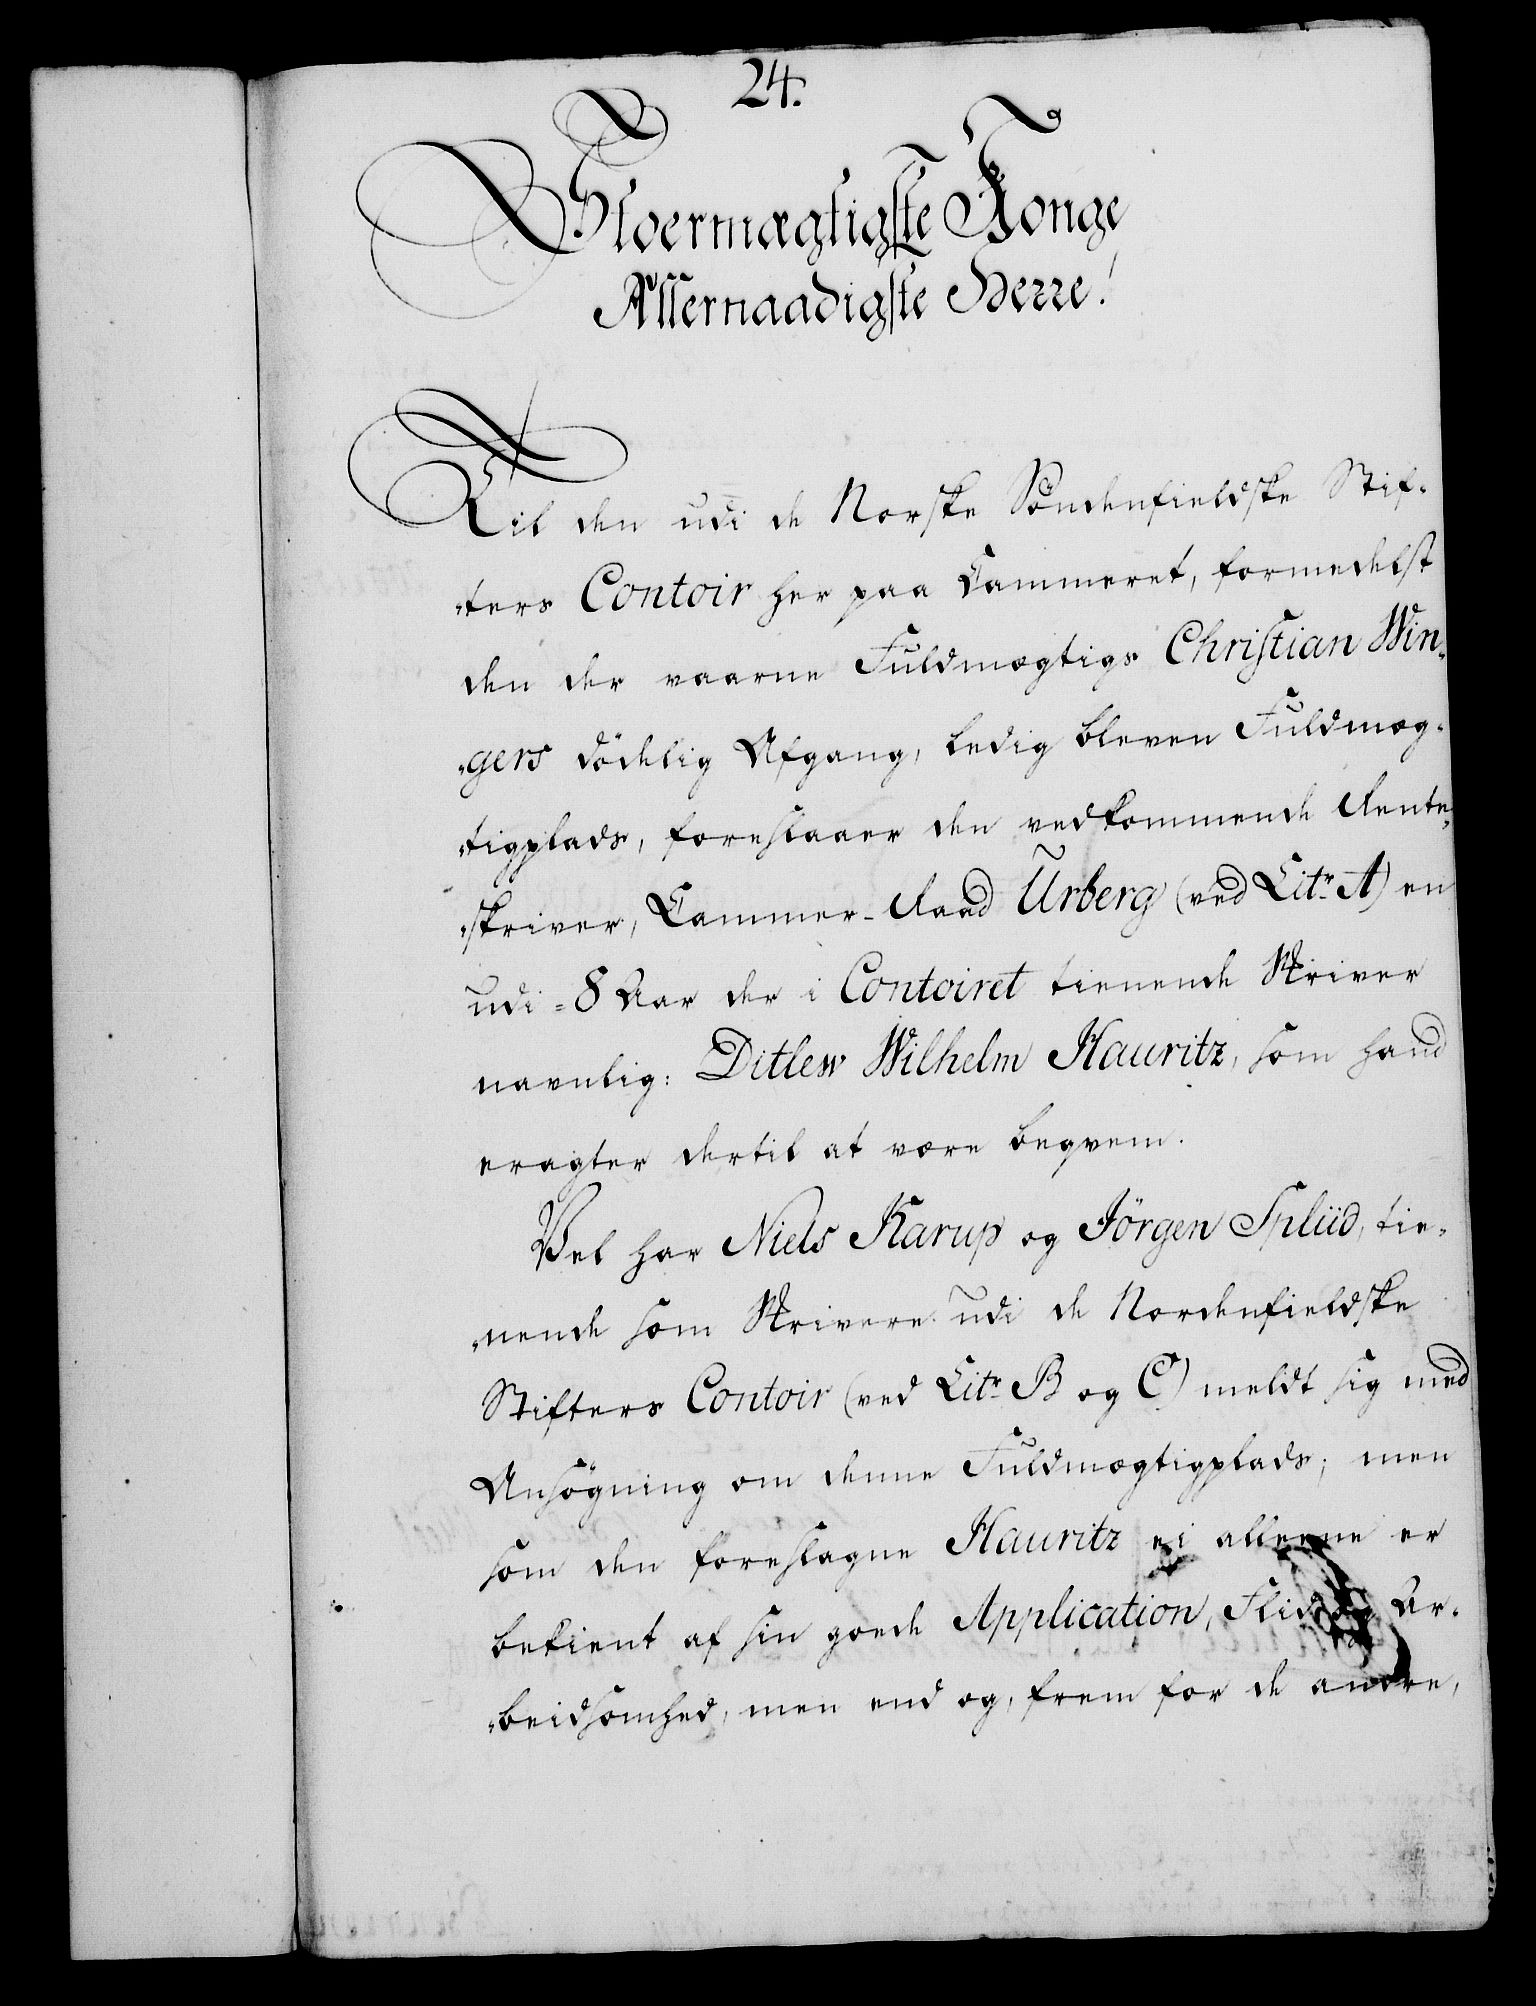 24.
Stoermægtigste Konge
Allernaadigste Herre!
Til den udi de Norske Söndenfieldske Stif-
ters Contoir her paa Cammeret, formedelst
den der vaarne Fuldmægtigs Christian Win-
gers dödelig Afgang, ledig bleven Fuldmæg-
tigplads, foreslaaer den vedkommende Rente-
skriver, Cammer-Raad Urberg (ved Litr. A) en
udi 8 Aar der i Contoiret tienende Skriver
navnlig: Ditlew Wilhelm Hauritz, som hand
eragter dertil at være beqvem.
Vel har Niels Karup og Jörgen Spliid, tie-
nende som Skrivere udi de Nordenfieldske
Stifters Contoir (ved Litr. B og C) meldt sig med
Ansögning om denne Fuldmægtigplads; men
som den foreslagne Hauritz ei alleene er
bekient af sin goede Application, Flid og Ar-
beidsomhed, men end og, frem for de andre,